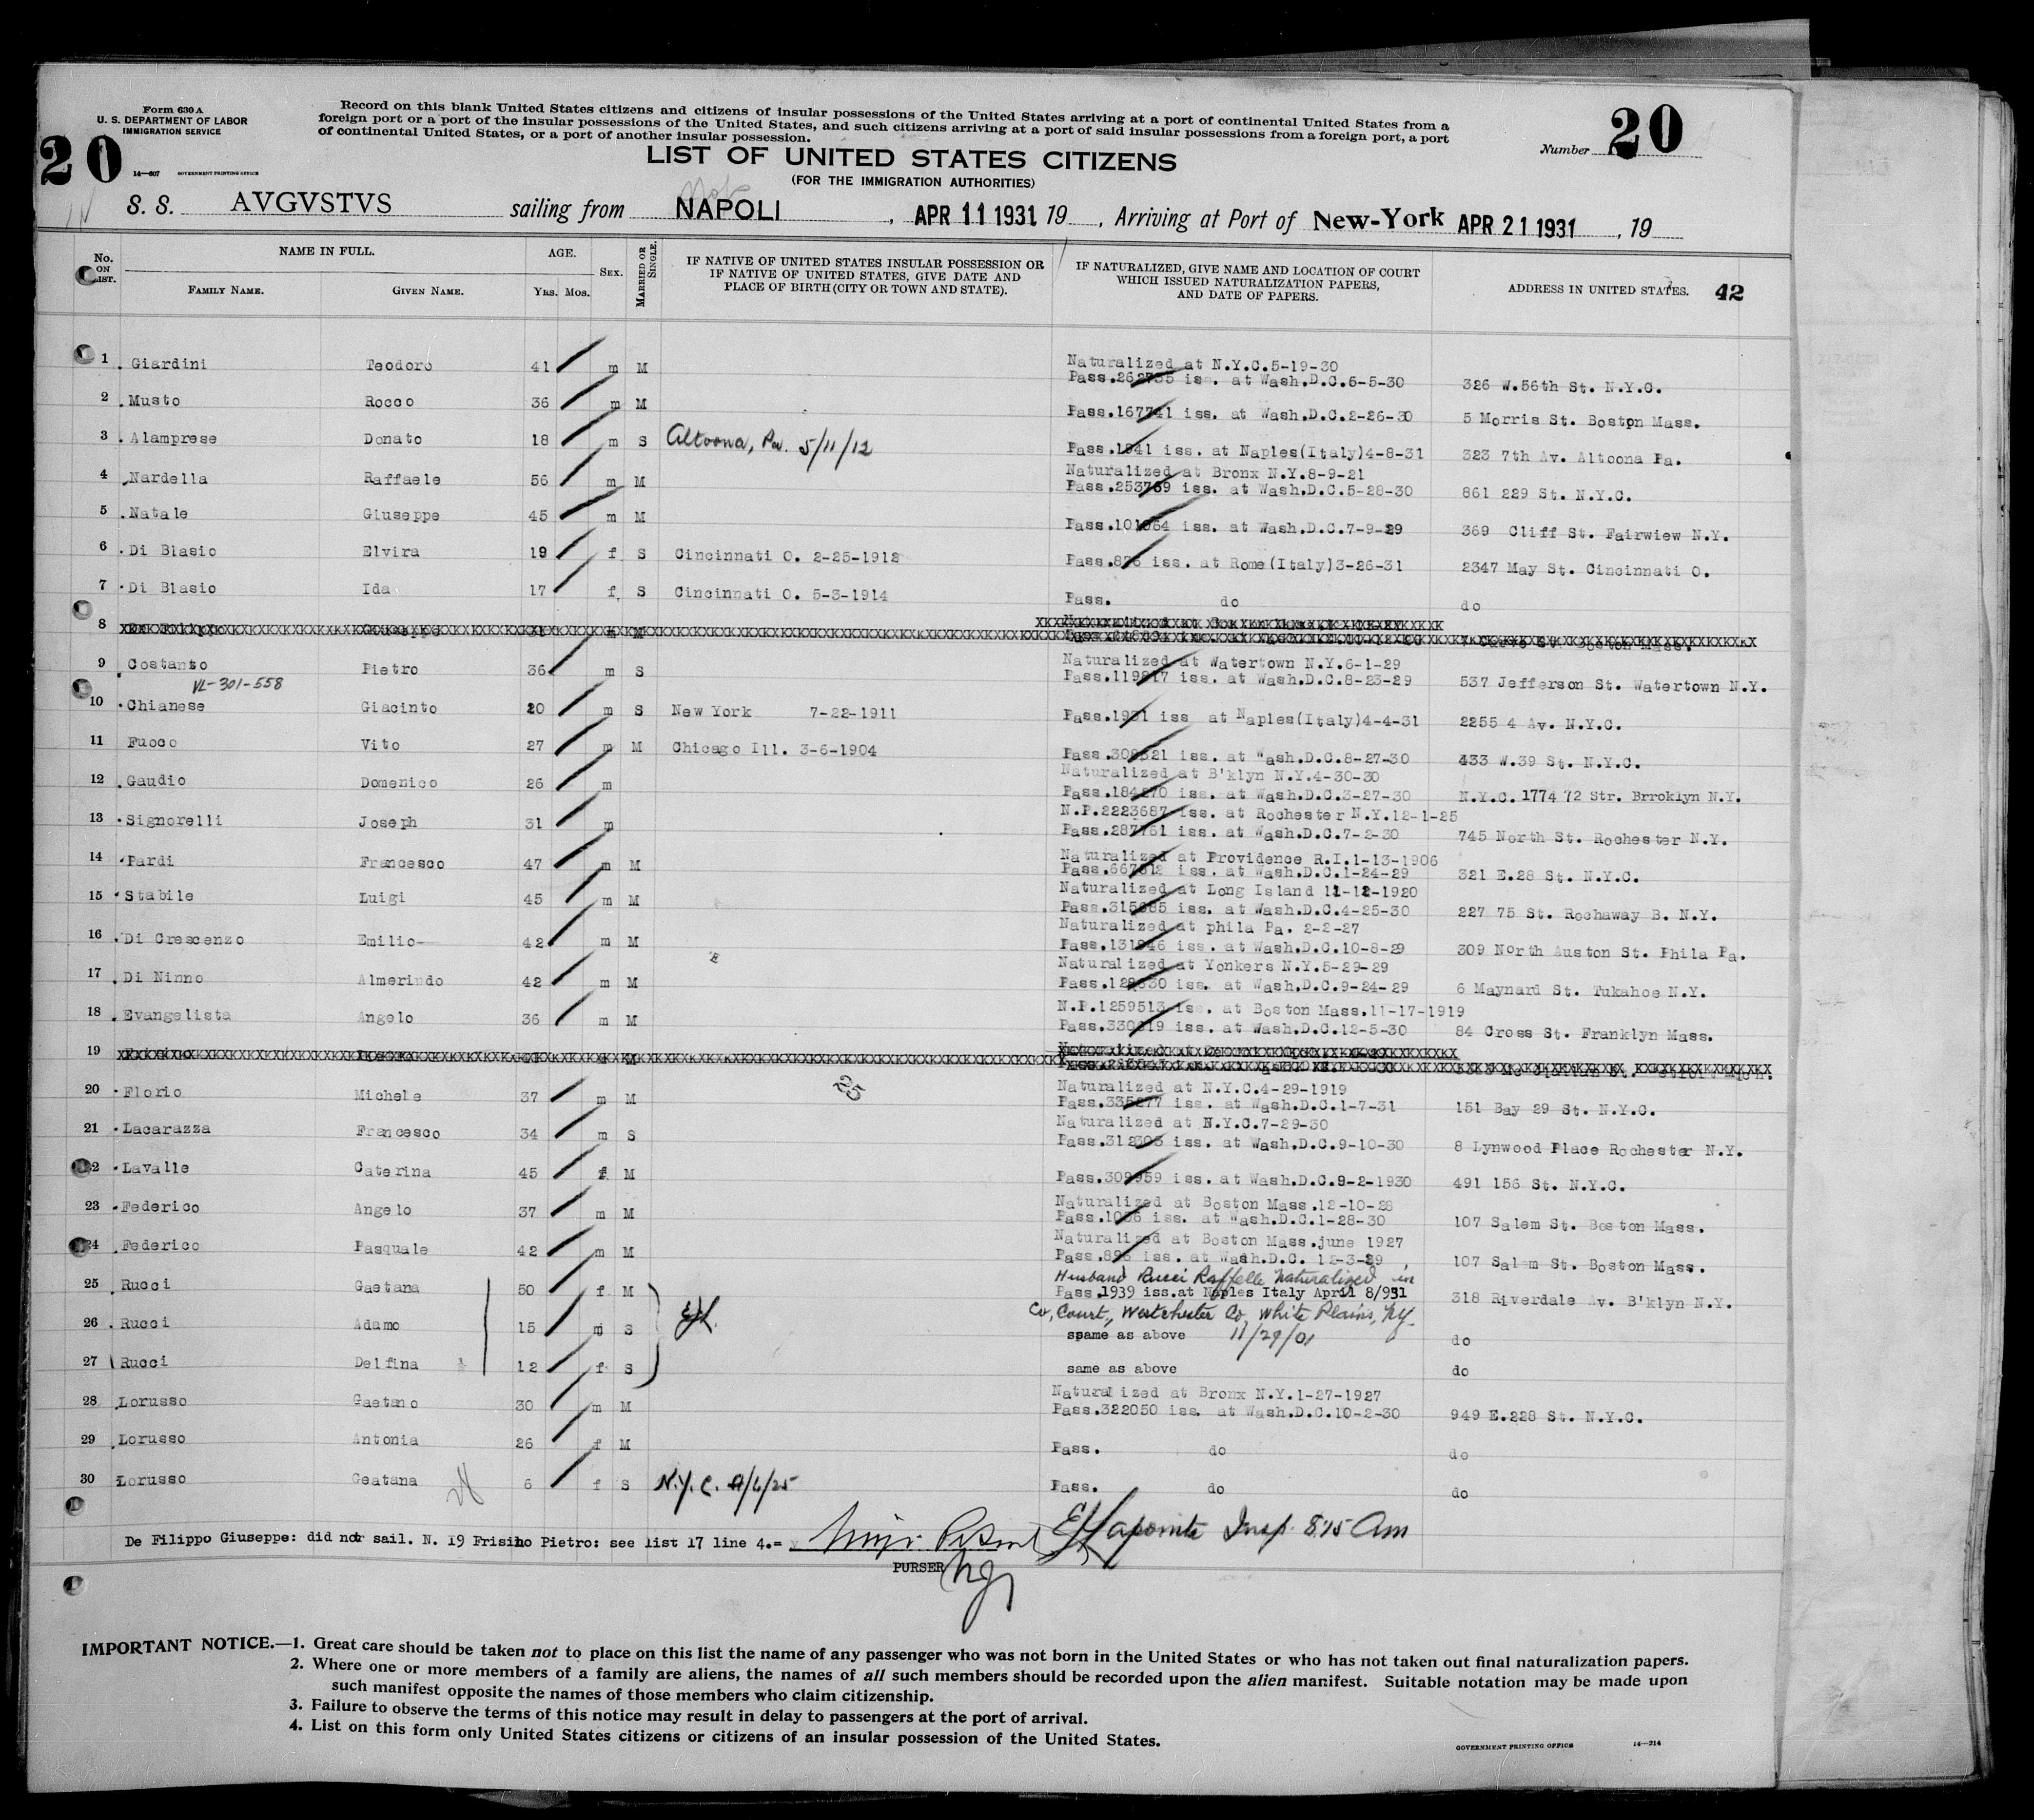 Form 630 A
U. S. DEPARTMENT OF LABOR
IMMIGRATION SERVICE
14—607 GOVERNMENT PRINTING OFFICE
20
Record on this blank United States citizens and citizens of insular possessions of the United States arriving at a port of continental United States from a
foreign port or a port of the insular possessions of the United States, and such citizens arriving at a port of said insular possessions from a foreign port, a port
of continental United States, or a port of another insular possession.
LIST OF UNITED STATES CITIZENS
(FOR THE IMMIGRATION AUTHORITIES)
Number 20
S. S. AVGVSTVS sailing from NAPOLI, APR 11 1931 19, Arriving at Port of New-York APR 21 1931, 19
No. ON LIST. NAME IN FULL. FAMILY NAME. GIVEN NAME. AGE. YRS. MOS. SEX. MARRIED OR SINGLE. IF NATIVE OF UNITED STATES INSULAR POSSESSION OR IF NATIVE OF UNITED STATES, GIVE DATE AND PLACE OF BIRTH (CITY OR TOWN AND STATE). IF NATURALIZED, GIVE NAME AND LOCATION OF COURT WHICH ISSUED NATURALIZATION PAPERS, AND DATE OF PAPERS. ADDRESS IN UNITED STATES. 42
1 Giardini Teodoro 41 m M Naturalized at N.Y.C.5-19-30
Pass. iss. at Wash.D.C.6-5-30 326 W.56th St. N.Y.C.
2 Musto Rocco 36 m M Pass.167741 iss. at Wash.D.C.2-26-30 5 Morris St. Boston Mass.
3 Alamprese Donato 18 m S Altoona, Pa. 5/11/12 Pass.1941 iss. at Naples(Italy)4-8-31 323 7th Av. Altoona Pa.
4 Nardella Raffaele 56 m M Naturalized at Bronx N.Y.8-9-21
Pass.253769 iss. at Wash.D.C.5-28-30 861 229 St. N.Y.C.
5 Natale Giuseppe 45 m M Pass. iss. at Wash.D.C.7-9-29 369 Cliff St. Fairwiew N.Y.
6 Di Blasio Elvira 19 f S Cincinnati O. 2-25-1912 Pass. iss. at Rome(Italy)3-26-31 2347 May St. Cincinnati O.
7 Di Blasio Ida 17 f S Cincinnati O. 5-3-1914 Pass. do do
8
9 Costanto Pietro 36 m S Naturalized at Watertown N.Y.6-1-29
VL-301-558 Pass. iss. at Wash.D.C.8-23-29 537 Jefferson St. Watertown N.Y.
10 Chianese Giacinto 20 m S New York 7-22-1911 Pass.1931 iss at Naples(Italy)4-4-31 2255 4 Av. N.Y.C.
11 Fuoco Vito 27 m M Chicago Ill. 3-6-1904 Pass. iss. at Wash.D.C.8-27-30 433 W.39 St. N.Y.C.
12 Gaudio Domenico 26 m Naturalized at B'klyn N.Y.4-30-30
Pass. iss. at Wash.D.C.3-27-30 N.Y.C. 1774 72 Str. Brroklyn N.Y.
13 Signorelli Joseph 31 m N.P.2223687 iss. at Rochester N.Y.12-1-25
Pass. iss. at Wash.D.C.7-2-30 745 North St. Rochester N.Y.
14 Pardi Francesco 47 m M Naturalized at Providence R.I.1-13-1906
Pass. iss. at Wash.D.C.1-24-29 321 E.28 St. N.Y.C.
15 Stabile Luigi 45 m M Naturalized at Long Island 11-12-1920
Pass. iss. at Wash.D.C.4-25-30 227 75 St. Rochaway B. N.Y.
16 Di Crescenzo Emilio 42 m M Naturalized at phila Pa. 2-2-27
Pass. iss. at Wash.D.C.10-8-29 309 North Auston St. Phila Pa.
17 Di Ninno Almerindo 42 m M Naturalized at Yonkers N.Y.5-29-29
Pass. iss. at Wash.D.C.9-24-29 6 Maynard St. Tukahoe N.Y.
18 Evangelista Angelo 36 m M N.P.1259513 iss. at Boston Mass.11-17-1919
Pass. iss. at Wash.D.C.12-5-30 84 Cross St. Franklyn Mass.
19
25
20 Florio Michele 37 m M Naturalized at N.Y.C.4-29-1919
Pass. iss. at Wash.D.C.1-7-31 151 Bay 29 St. N.Y.C.
21 Lacarazza Francesco 34 m S Naturalized at N.Y.C.7-29-30
Pass. iss. at Wash.D.C.9-10-30 8 Lynwood Place Rochester N.Y.
22 Lavalle Caterina 45 f M Pass. iss. at Wash.D.C.9-2-1930 491 156 St. N.Y.C.
23 Federico Angelo 37 m M Naturalized at Boston Mass.12-10-28
Pass. iss. at Wash.D.C.1-28-30 107 Salem St. Boston Mass.
24 Federico Pasquale 42 m M Naturalized at Boston Mass.june 1927
Pass. iss. at Wash.D.C. 12-3-29 107 Salem St. Boston Mass.
Husband Rucci Raffelle Naturalized in
25 Rucci Gaetana 50 f M Pass.1939 iss.at Naples Italy April 8/931 318 Riverdale Av. B'klyn N.Y.
Co, Court, Westchester Co, White Plains, NY
26 Rucci Adamo 15 m S spame as above 11/29/01 do
27 Rucci Delfina 12 f S same as above do
28 Lorusso Gaetano 30 m M Naturalized at Bronx N.Y.1-27-1927
Pass.322050 iss. at Wash.D.C.10-2-30 949 E.228 St. N.Y.C.
29 Lorusso Antonia 26 f M Pass. do do
30 Lorusso Geatana 6 f S N.Y.C. /6/25 Pass. do do
De Filippo Giuseppe: did not sail. N. I9 Frisino Pietro: see list 17 line 4.= Lapointe Insp. 8:15 Am
PURSER
IMPORTANT NOTICE.—1. Great care should be taken not to place on this list the name of any passenger who was not born in the United States or who has not taken out final naturalization papers.
2. Where one or more members of a family are aliens, the names of all such members should be recorded upon the alien manifest. Suitable notation may be made upon
such manifest opposite the names of those members who claim citizenship.
3. Failure to observe the terms of this notice may result in delay to passengers at the port of arrival.
4. List on this form only United States citizens or citizens of an insular possession of the United States.
GOVERNMENT PRINTING OFFICE 14—214